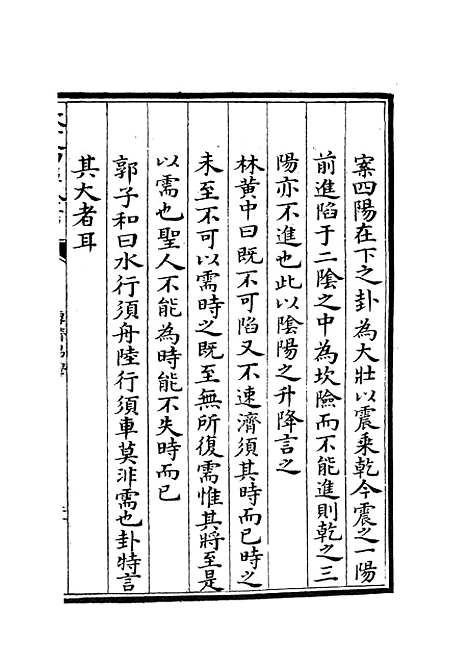 案四陽在下之卦為大壯以震乘乾今震之一陽
前進陷于二陰之中為坎險而不能進則乾之三
陽亦不進也此以陰陽之升降言之
林黃中曰既不可陷又不速濟須其時而已時之
未至不可以需時之既至無所復需惟其將至是
以需也聖人不能為時能不失時而已
郭子和曰水行須舟陸行須車莫非需也卦特言
其大者耳